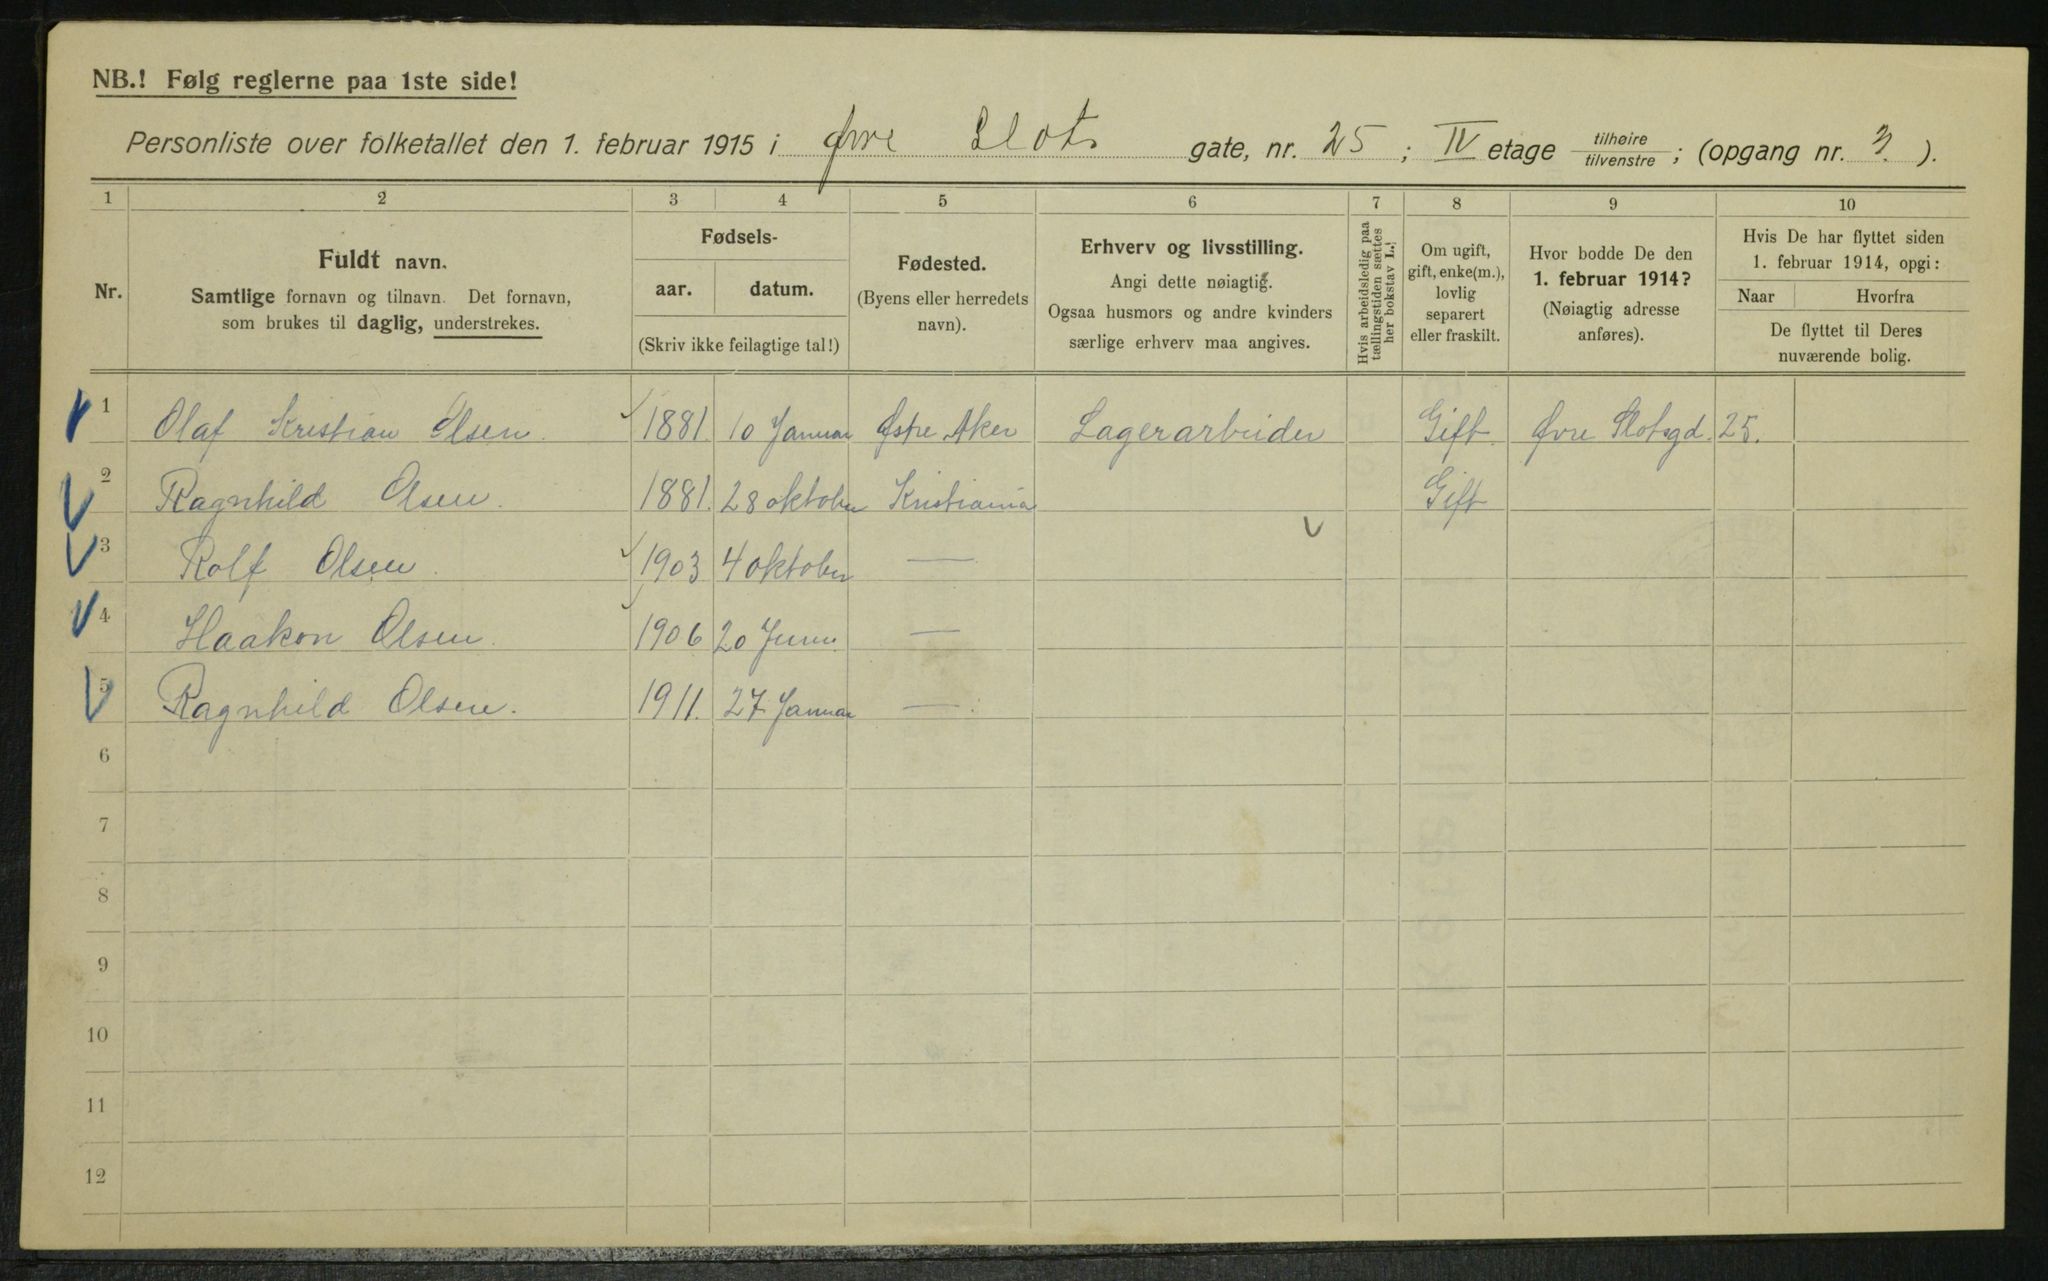 NB.! Følg reglerne paa 1ste side!
Personliste over folketallet den 1. februar 1915 i Øvre Slots gate, nr. 25 ; IV etage tilhøire / tilvenstre ; (opgang nr. 3. ).
1 2 3 4 5 6 7 8 9 10
Nr.
Fuldt navn.
Samtlige fornavn og tilnavn. Det fornavn,
som brukes til daglig, understrekes.
Fødsels-
aar. datum.
(Skriv ikke feilagtige tal!)
Fødested.
(Byens eller herredets
navn).
Erhverv og livsstilling.
Angi dette nøiagtig.
Ogsaa husmors og andre kvinders
særlige erhverv maa angives.
Hvis arbeidsledig paa
tællingstiden sættes
her bokstav L.!
Om ugift,
gift, enke(m.),
lovlig
separert
eller fraskilt.
Hvor bodde De den
1. februar 1914?
(Nøiagtig adresse
anføres).
Hvis De har flyttet siden
1. februar 1914, opgi:
Naar Hvorfra
De flyttet til Deres
nuværende bolig.
1 Olaf Kristian Olsen. 1881. 10 Januar Østre Aker Lagerarbeider Gift. Øvre Slotsgd. 25.
2 Ragnhild Olsen. 1881. 28 oktober Kristiania Gift
3 Rolf Olsen. 1903 4 oktober —
4 Haakon Olsen. 1906 20 Juni. —
5 Ragnhild Olsen. 1911. 27 Januar —
6
7
8
9
10
11
12